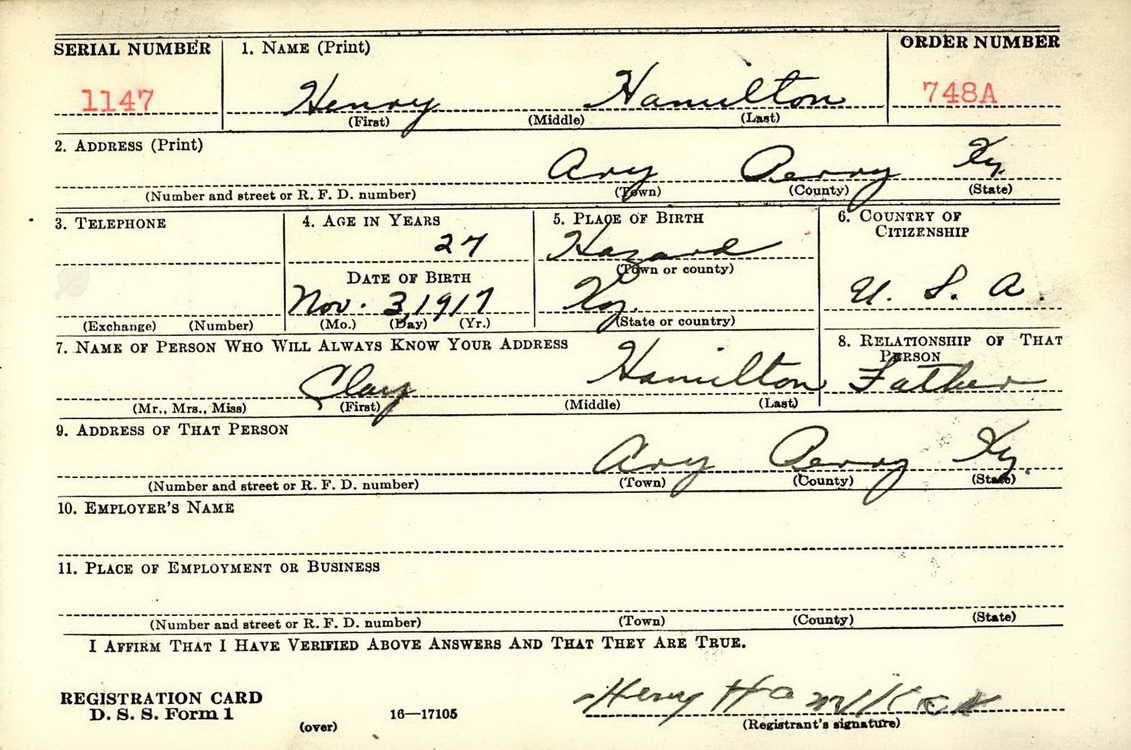 SERIAL NUMBER 1. NAME (Print) ORDER NUMBER
1147 Henry Hamilton 748A
(First) (Middle) (Last)
2. ADDRESS (Print)
Ary Perry Ky.
(Number and street or R. F. D. number) (Town) (County) (State)
3. TELEPHONE 4. AGE IN YEARS 5. PLACE OF BIRTH 6. COUNTRY OF CITIZENSHIP
27 Hazard
(Town or county)
DATE OF BIRTH
Nov. 3, 1917 Ky. U. S. A.
(Exchange) (Number) (Mo.) (Day) (Yr.) (State or country)
7. NAME OF PERSON WHO WILL ALWAYS KNOW YOUR ADDRESS 8. RELATIONSHIP OF THAT PERSON
Clay Hamilton Father
(Mr., Mrs., Miss) (First) (Middle) (Last)
9. ADDRESS OF THAT PERSON
Ary Perry Ky.
(Number and street or R. F. D. number) (Town) (County) (State)
10. EMPLOYER'S NAME
11. PLACE OF EMPLOYMENT OR BUSINESS
(Number and street or R. F. D. number) (Town) (County) (State)
I AFFIRM THAT I HAVE VERIFIED ABOVE ANSWERS AND THAT THEY ARE TRUE.
REGISTRATION CARD
D. S. S. Form 1 16—17105 Henry Hamilton
(over) (Registrant's signature)